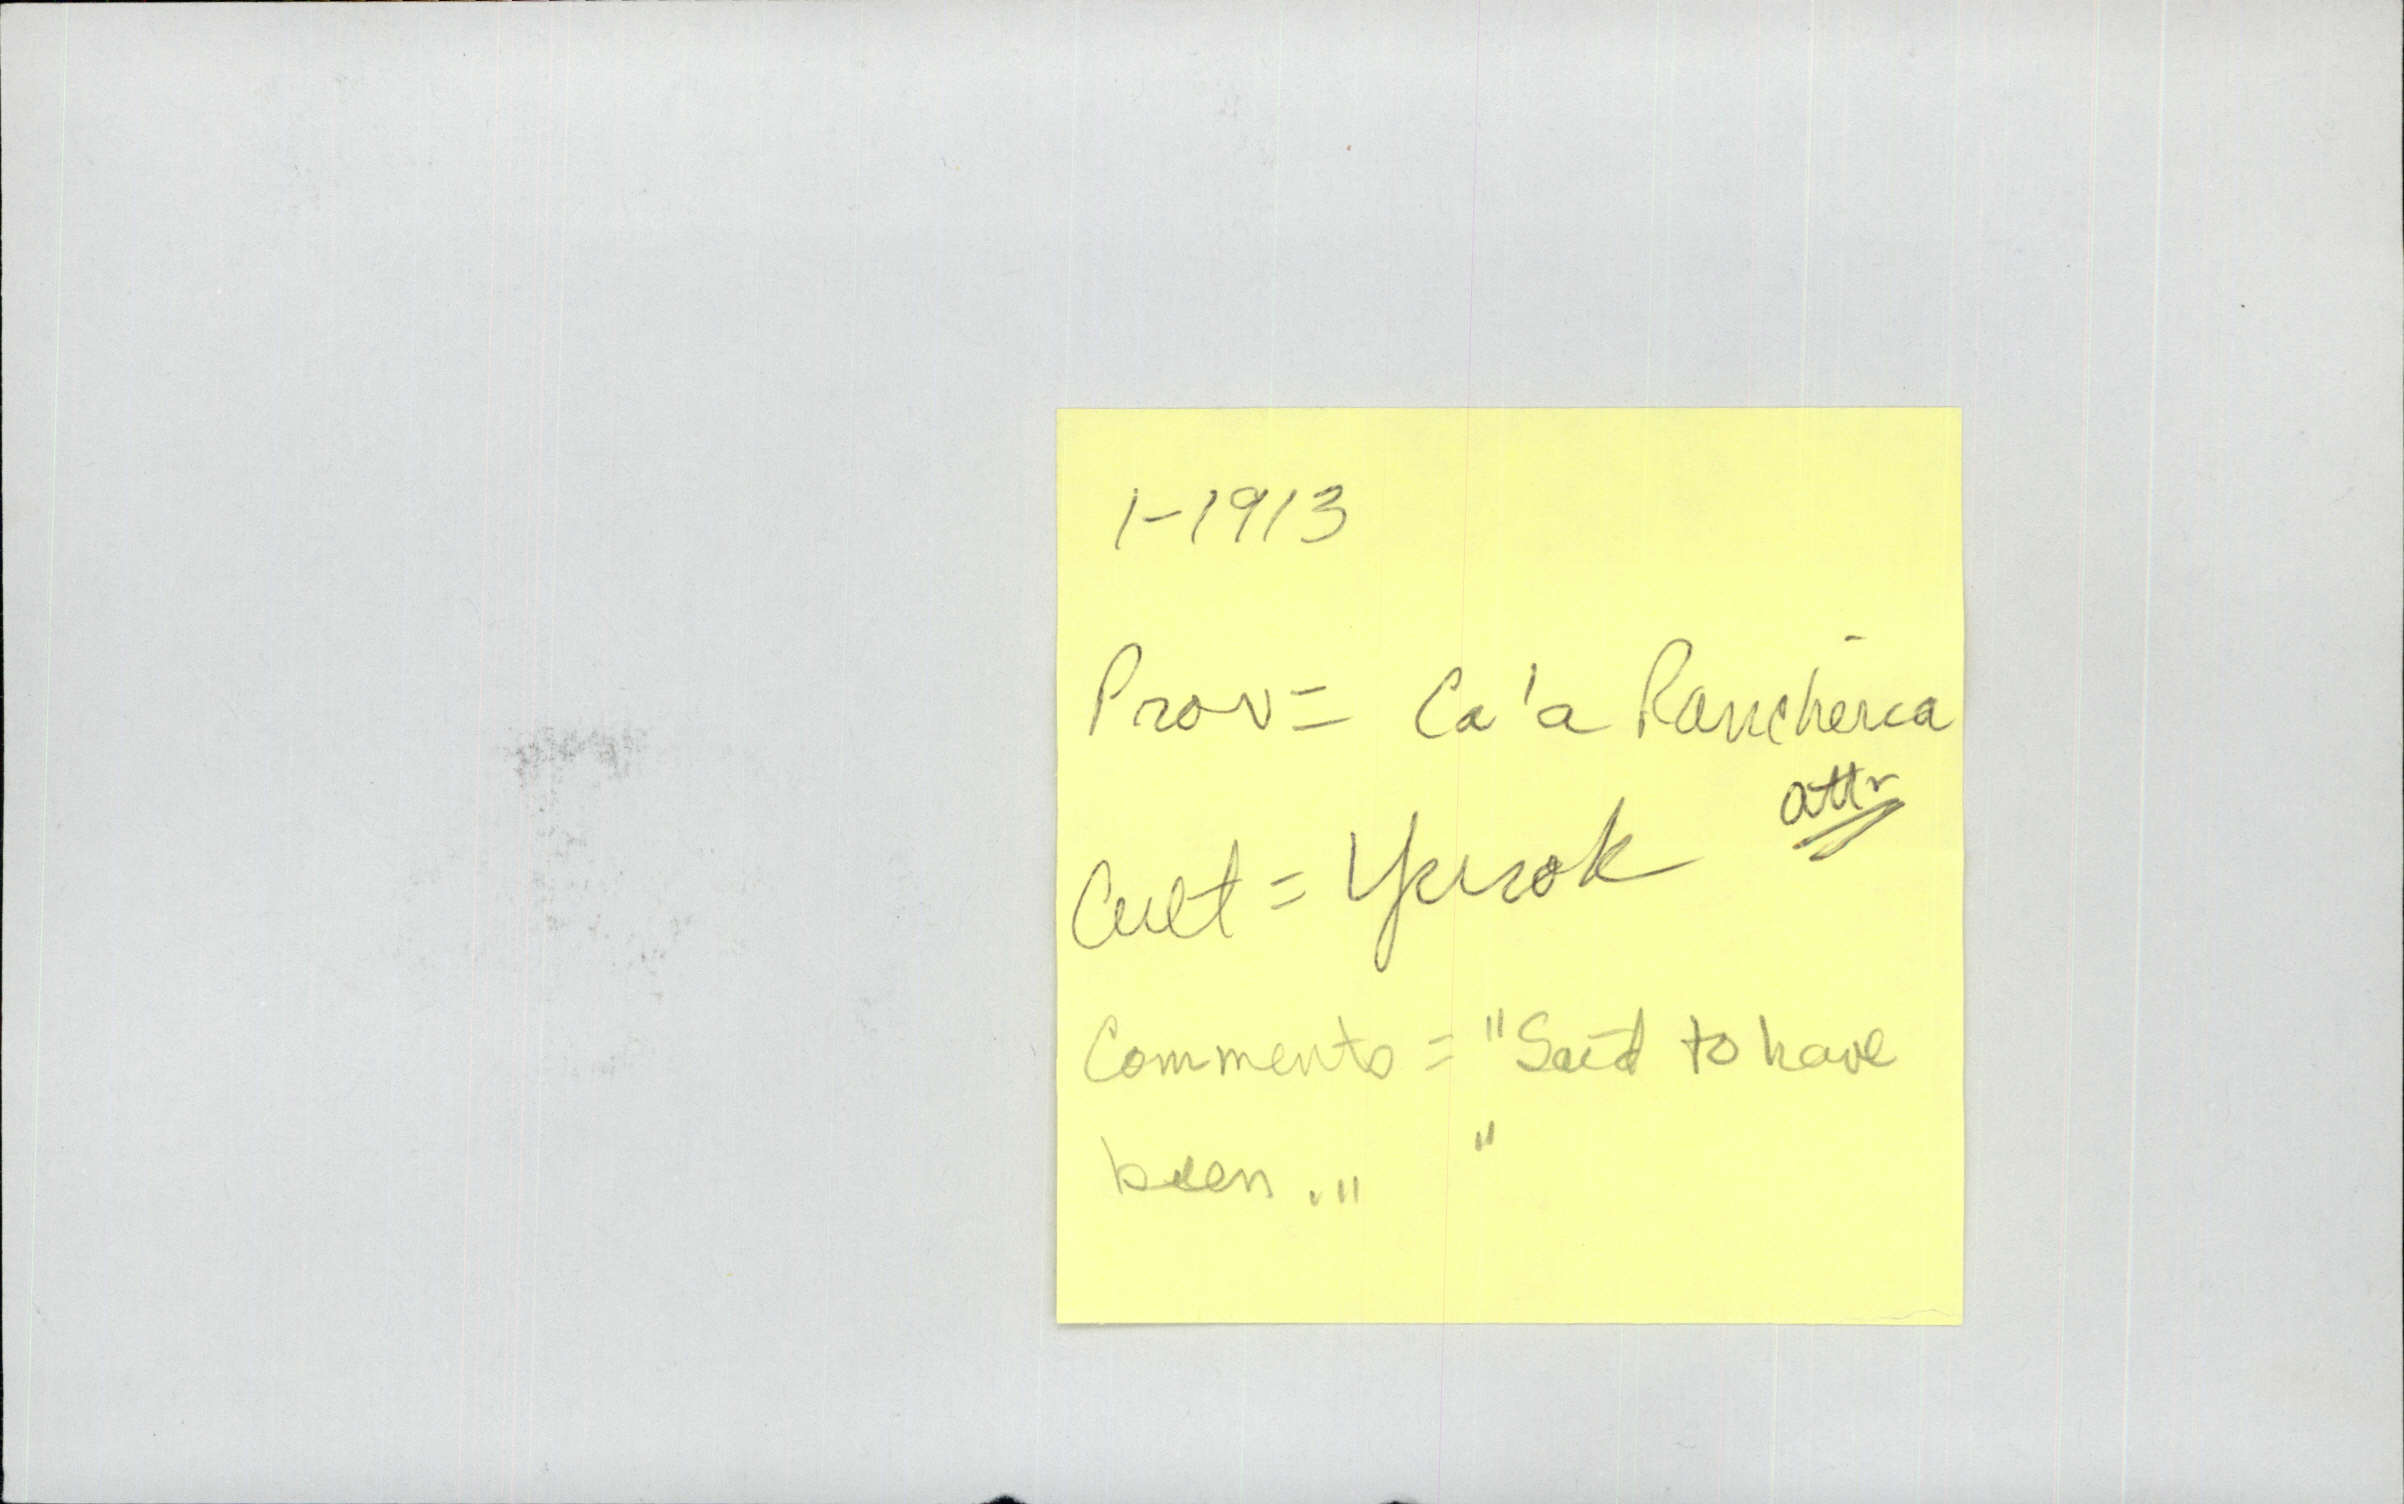 1-1913
Prov = Ca'a Rancheria
attr
Cult = Yurok
Comments = "Said to have
been ... "